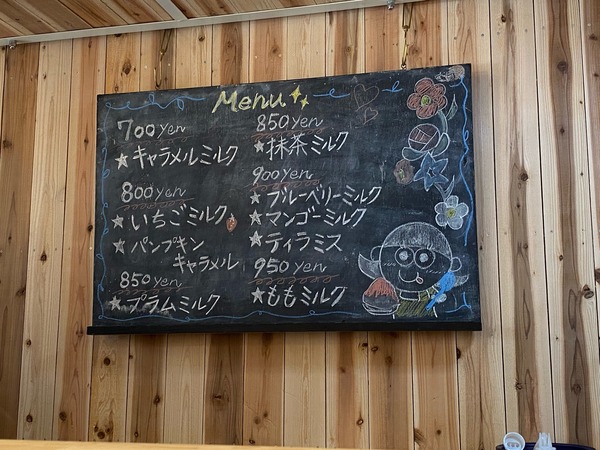 Menu
700 yen
★キャラメルミルク
800 yen
★いちごミルク
★パンプキン
キャラメル
850 yen
★プラムミルク
850 yen
★抹茶ミルク
900 yen
★ブルーベリーミルク
★マンゴーミルク
★ティラミス
950 yen
★ももミルク